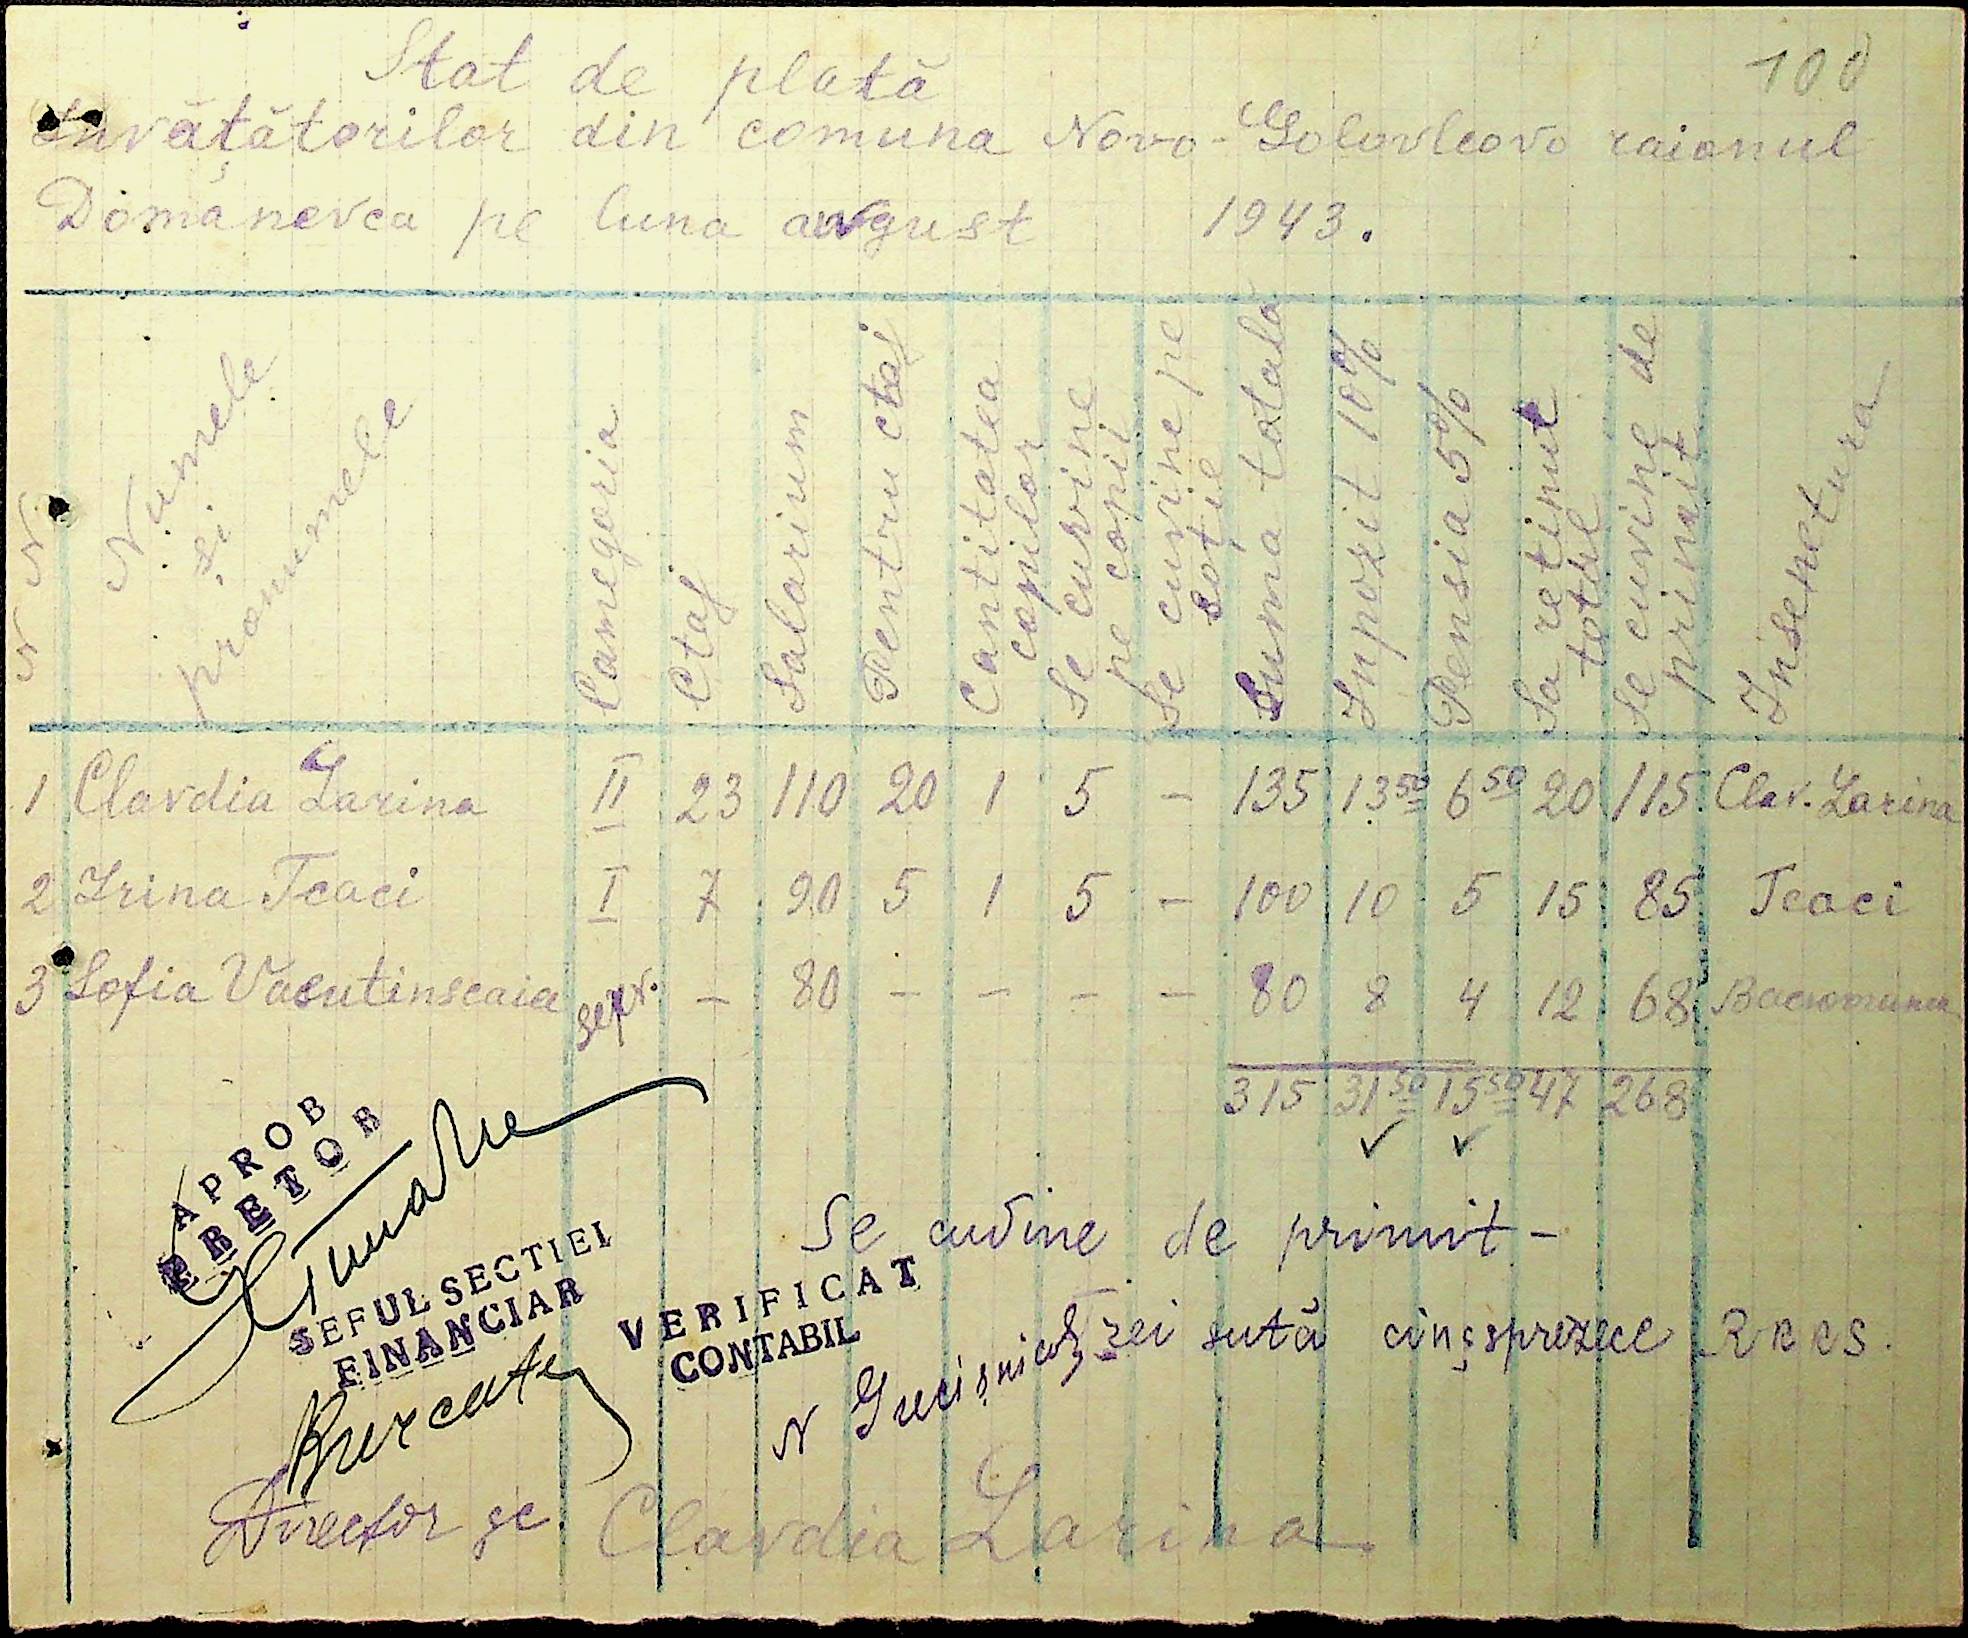 100
Stat de plată
Învățătorilor din comuna Novo-Golovleovo raionul
Domanevca pe luna avgust 1943.
N N
Numele și pronumele
Camegoria
Ctaj
Salarium
Pentru ctaj
Cantitatea copilor
Se cuvine pe copii
Se cuvine pe soție
Suma totală
Inpozit 10%
Pensia 5%
Sa retinut total
Se cuvine de primit
Insenetura
1 Clavdia Larina II 23 110 20 1 5 - 135 13 50 6 50 20 115 Clav. Larina
2 Irina Tcaci I 7 90 5 1 5 - 100 10 5 15 85 Tcaci
3 Sofia Vacutinscaia - 80 - - - - 80 8 4 12 68
315 31 50 15 50 47 268
APROB
PRETOR
Se cuvine de primit -
SEFUL SECTIEI
FINANCIAR
VERIFICAT
CONTABIL
Trei sută cinsprezece RKKS.
Director șc. Clavdia Larina